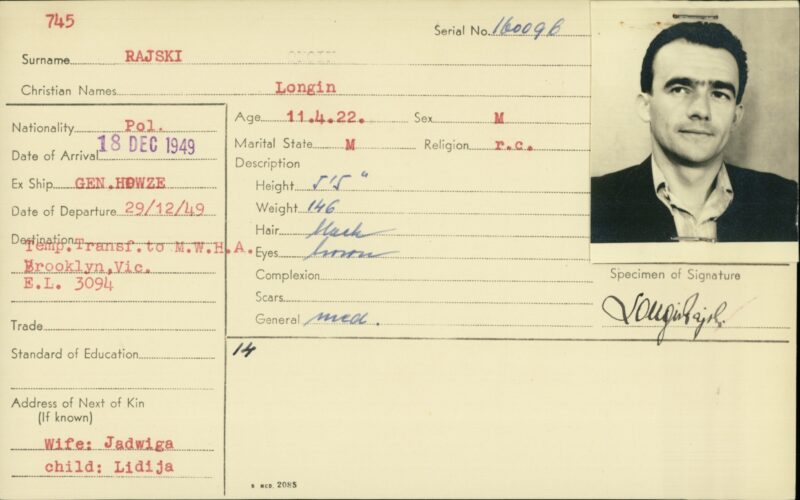 745
Serial No. 160098
Surname RAJSKI
Christian Names Longin
Nationality Pol.
Date of Arrival 18 DEC 1949
Ex Ship GEN.HOWZE
Date of Departure 29/12/49
Destination Temp.Transf.to M.W.H.A.
Brooklyn,Vic.
E.L. 3094
Trade
Standard of Education
Address of Next of Kin
(If known)
Wife: Jadwiga
child: Lidija
Age 11.4.22. Sex M
Marital State M Religion r.c.
Description
Height 5'5"
Weight 146
Hair black
Eyes brown
Complexion
Scars
General med.
14
Specimen of Signature
Longin Rajski
S MCD. 2085